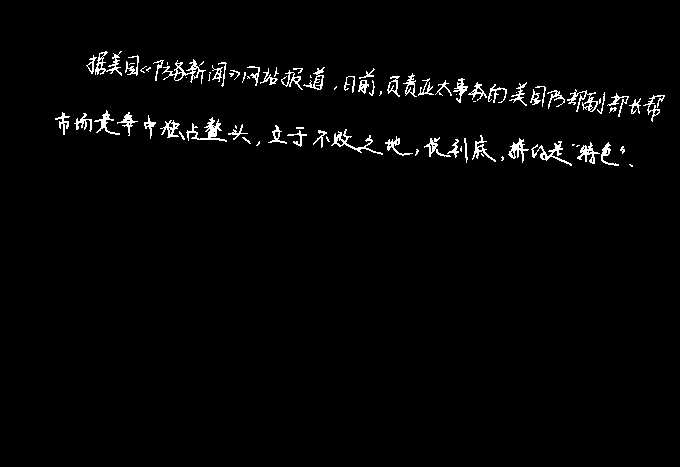 据美国《防务新闻》网站报道，日前，负责亚太事务的美国防部副部长帮
市场竞争中独占鳌头，立于不败之地，说到底，拼的是“特色”、